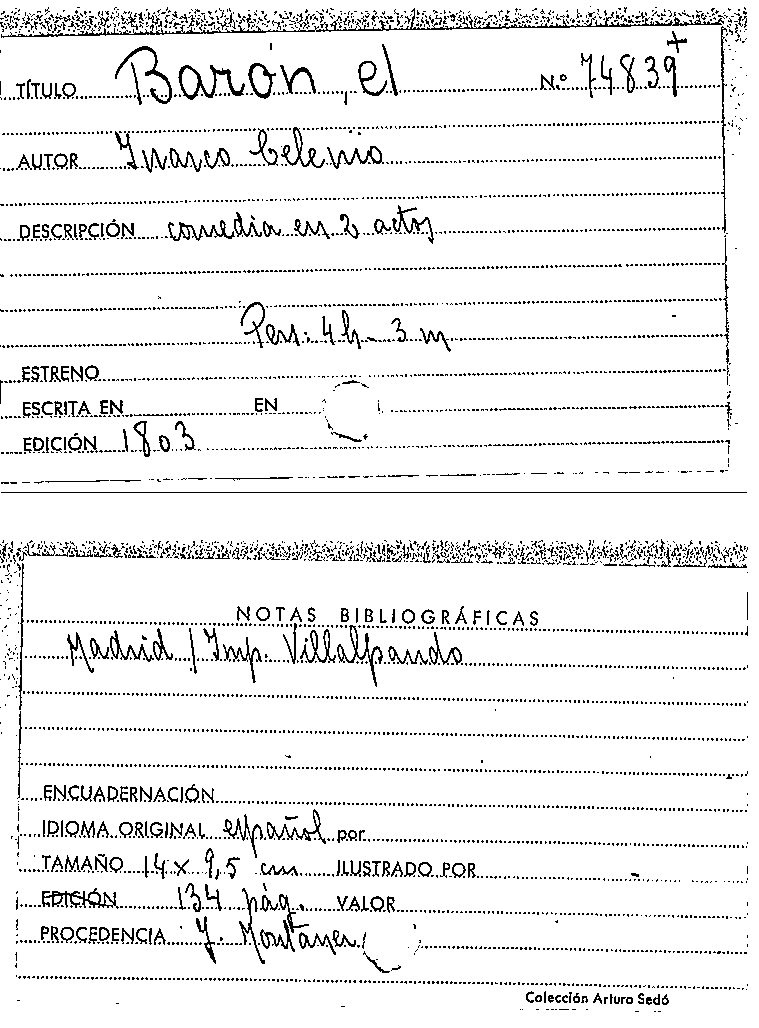 TÍTULO Barón, el N.º 74839+
AUTOR Inarco Celenio
DESCRIPCIÓN comedia en 2 actos
Pers: 4 h - 3 m
ESTRENO
ESCRITA EN EN
EDICIÓN 1803
NOTAS BIBLIOGRÁFICAS
Madrid / Imp. Villalpando
ENCUADERNACIÓN
IDIOMA ORIGINAL español por
TAMAÑO 14 x 9,5 cm ILUSTRADO POR
EDICIÓN 134 pág. VALOR
PROCEDENCIA J. Montaner
Colección Arturo Sedó